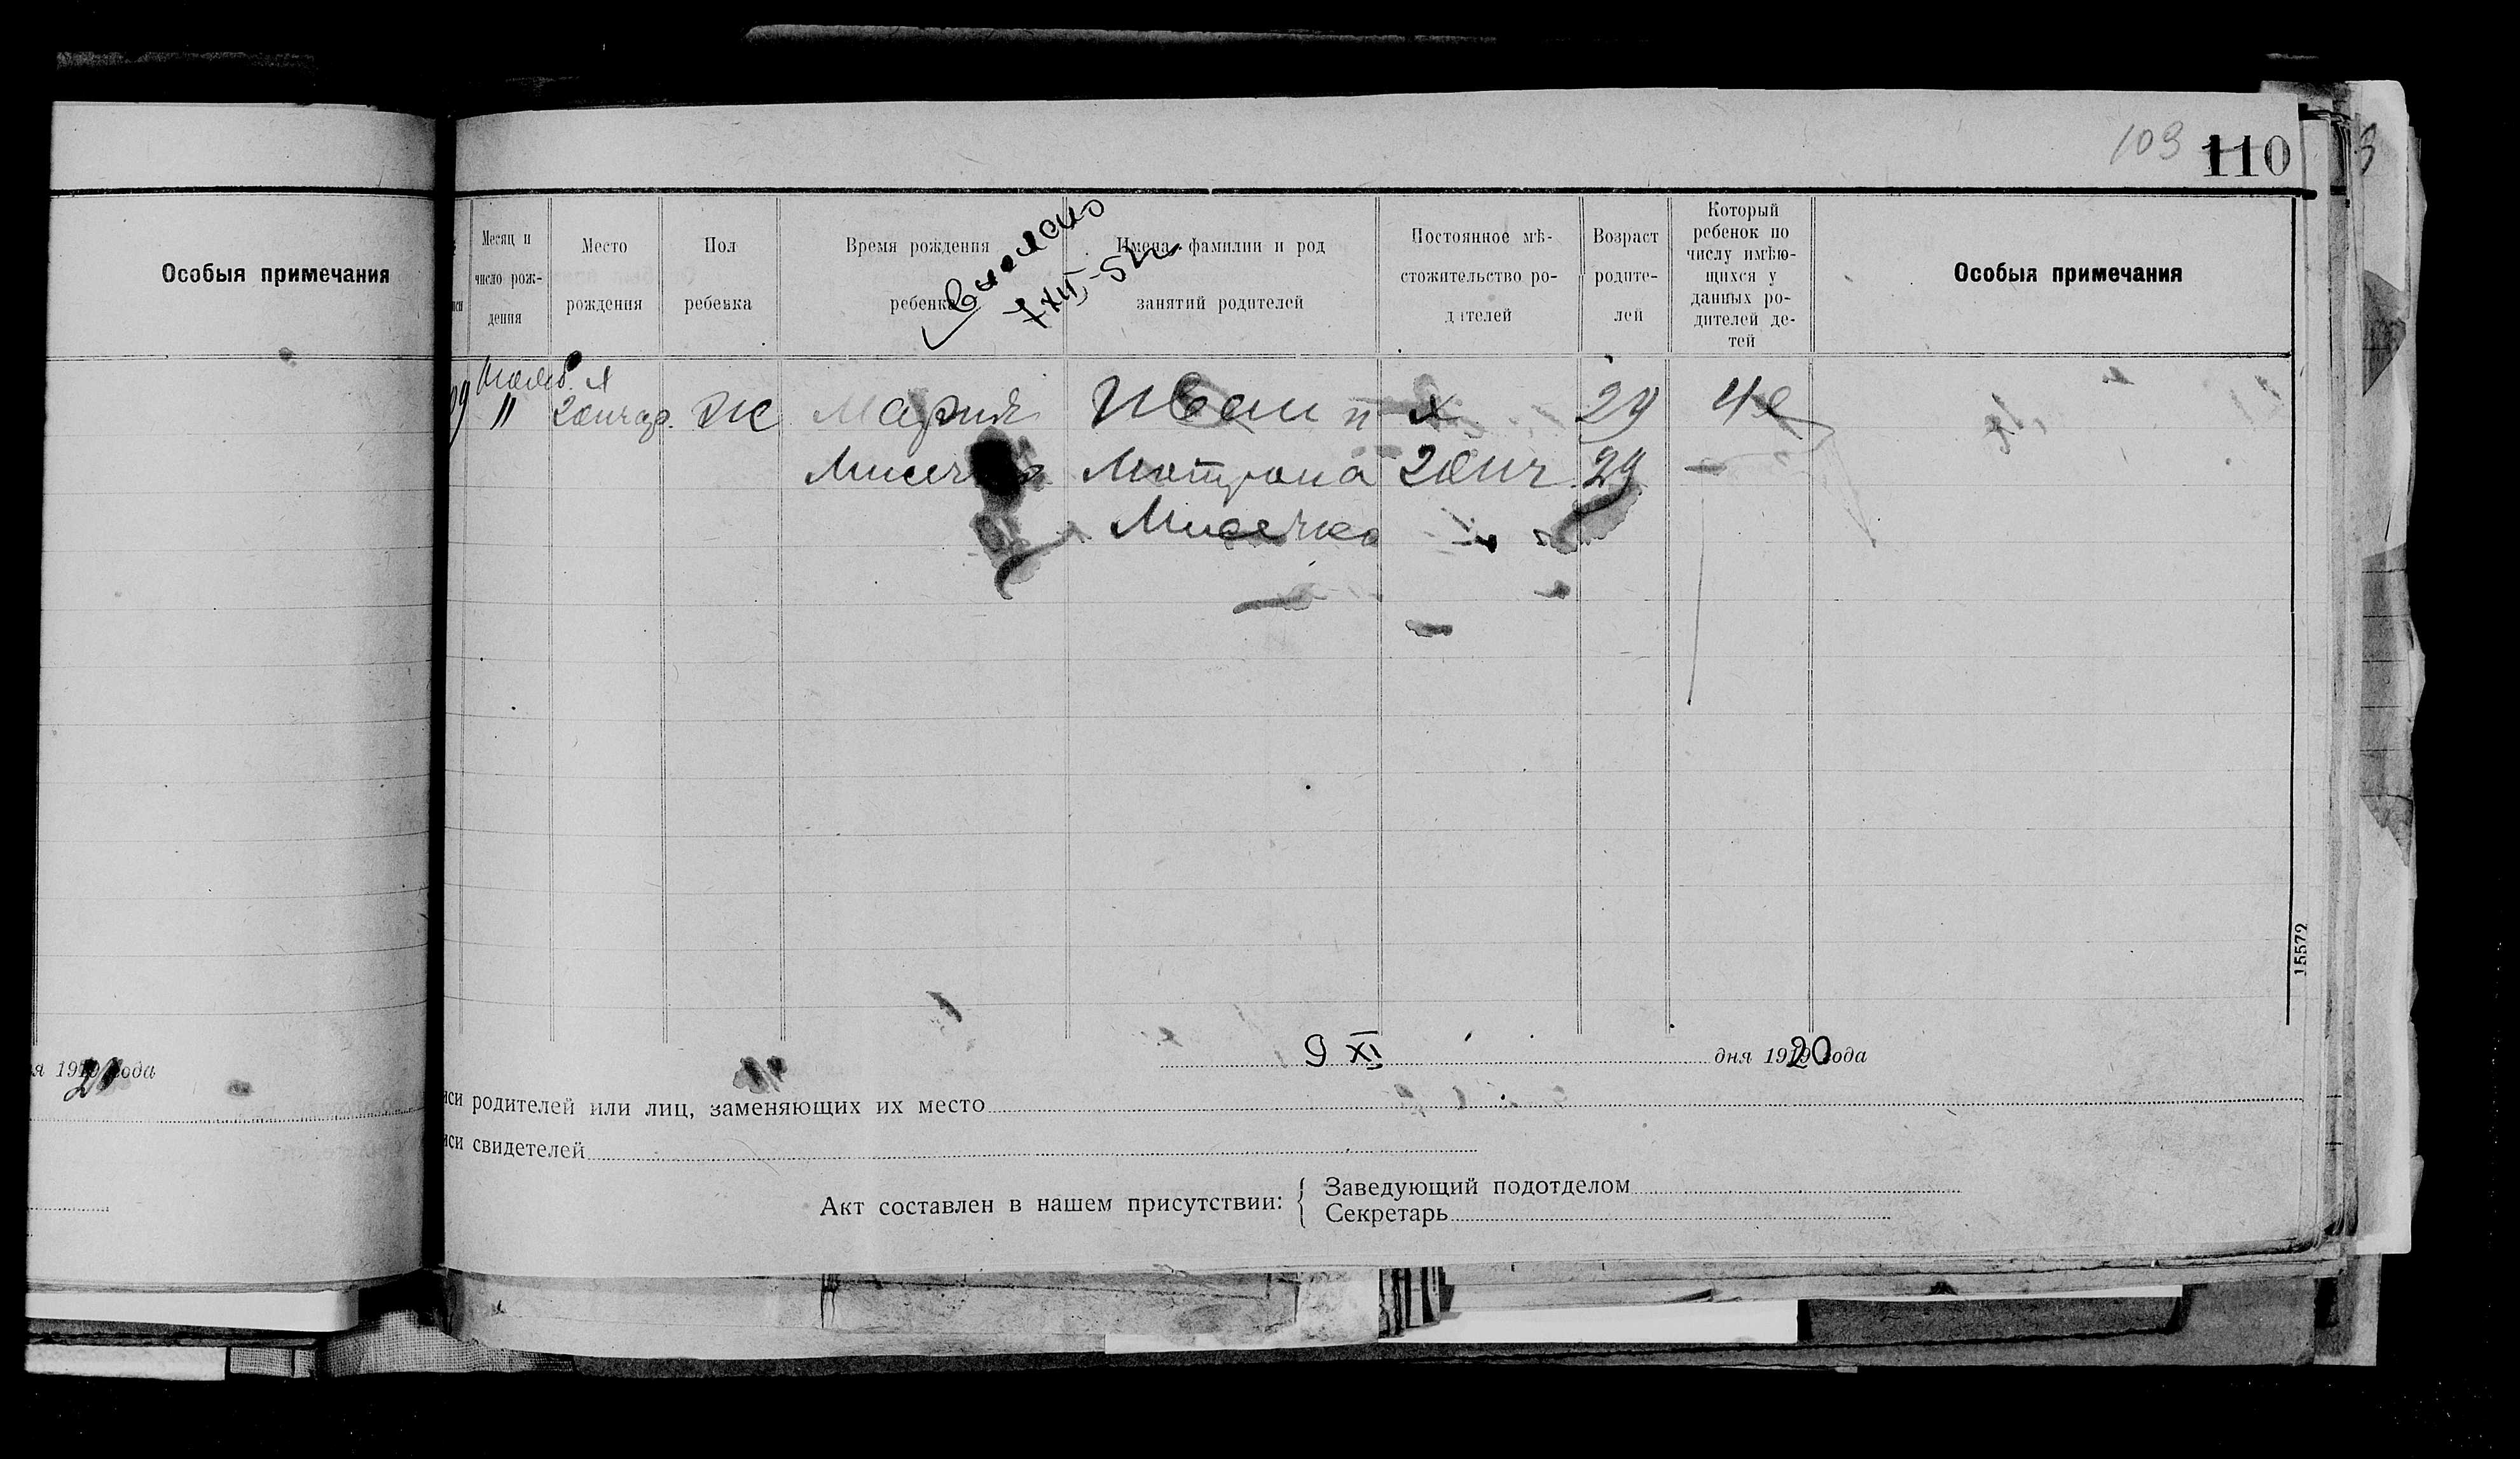 103 110
Особыя примечания
Месяц и число рож-дения
Место рождения
Пол ребенка
Время рождения ребенка
Имена фамилии и род занятий родителей
Постоянное мѣ-стожительство ро-дителей
Возраст родите-лей
Который ребенок по числу имѣю-щихся у данных ро-дителей де-тей
Особыя примечания
7 XII-52г
" Ж Мария Иван и х 29 4й
Мотрона 29
Мисечко
15572
9 XI дня 1920 года
я 19 года
иси родителей или лиц, заменяющих их место
иси свидетелей
Акт составлен в нашем присутствии:
Заведующий подотделом
Секретарь